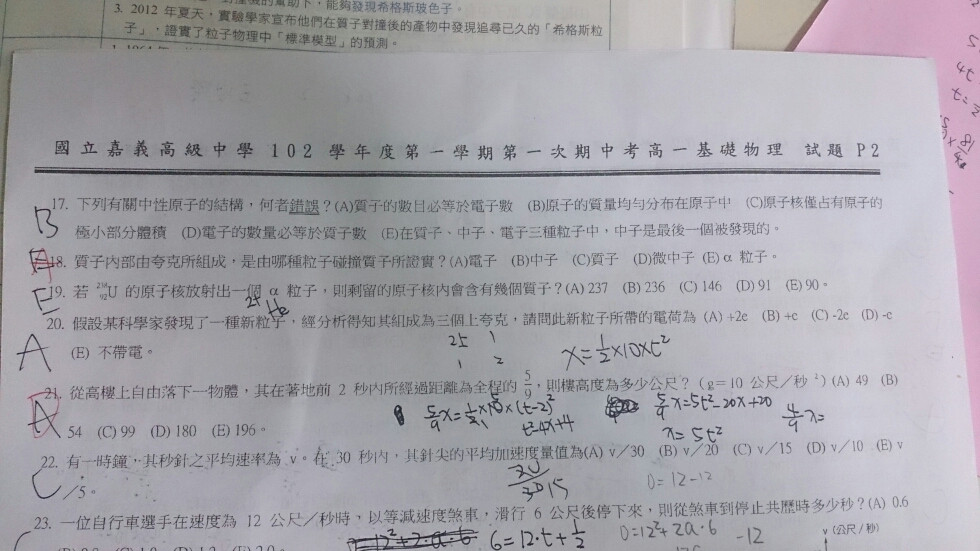 能夠發現希格斯玻色子。
3. 2012 年夏天，實驗學家宣布他們在質子對撞後的產物中發現追尋已久的「希格斯粒
子」，證實了粒子物理中「標準模型」的預測。
國立嘉義高級中學 102 學年度第一學期第一次期中考高一基礎物理 試題 P2
B 17. 下列有關中性原子的結構，何者錯誤？(A)質子的數目必等於電子數 (B)原子的質量均勻分布在原子中 (C)原子核僅占有原子的
極小部分體積 (D)電子的數量必等於質子數 (E)在質子、中子、電子三種粒子中，中子是最後一個被發現的。
A 18. 質子內部由夸克所組成，是由哪種粒子碰撞質子所證實？(A)電子 (B)中子 (C)質子 (D)微中子 (E) α 粒子。
E 19. 若 ²³⁸₉₂U 的原子核放射出一個 α 粒子，則剩留的原子核內會含有幾個質子？(A) 237 (B) 236 (C) 146 (D) 91 (E) 90。
He
20. 假設某科學家發現了一種新粒子，經分析得知其組成為三個上夸克，請問此新粒子所帶的電荷為 (A) +2e (B) +e (C) -2e (D) -e
A (E) 不帶電。
x=½×10×t²
21. 從高樓上自由落下一物體，其在著地前 2 秒內所經過距離為全程的 5/9，則樓高度為多少公尺？（g=10 公尺／秒²）(A) 49 (B)
54 (C) 99 (D) 180 (E) 196。
t²-4x+4
5/9 x=5t²-20x+20
x=5t²
4/9 x=
22. 有一時鐘，其秒針之平均速率為 v。在 30 秒內，其針尖的平均加速度量值為(A) v／30 (B) v／20 (C) v／15 (D) v／10 (E) v
C ／5。
0=12-12
23. 一位自行車選手在速度為 12 公尺／秒時，以等減速度煞車，滑行 6 公尺後停下來，則從煞車到停止共歷時多少秒？(A) 0.6
6=12·t+½
0=12²+2a·6
-12
v (公尺／秒)